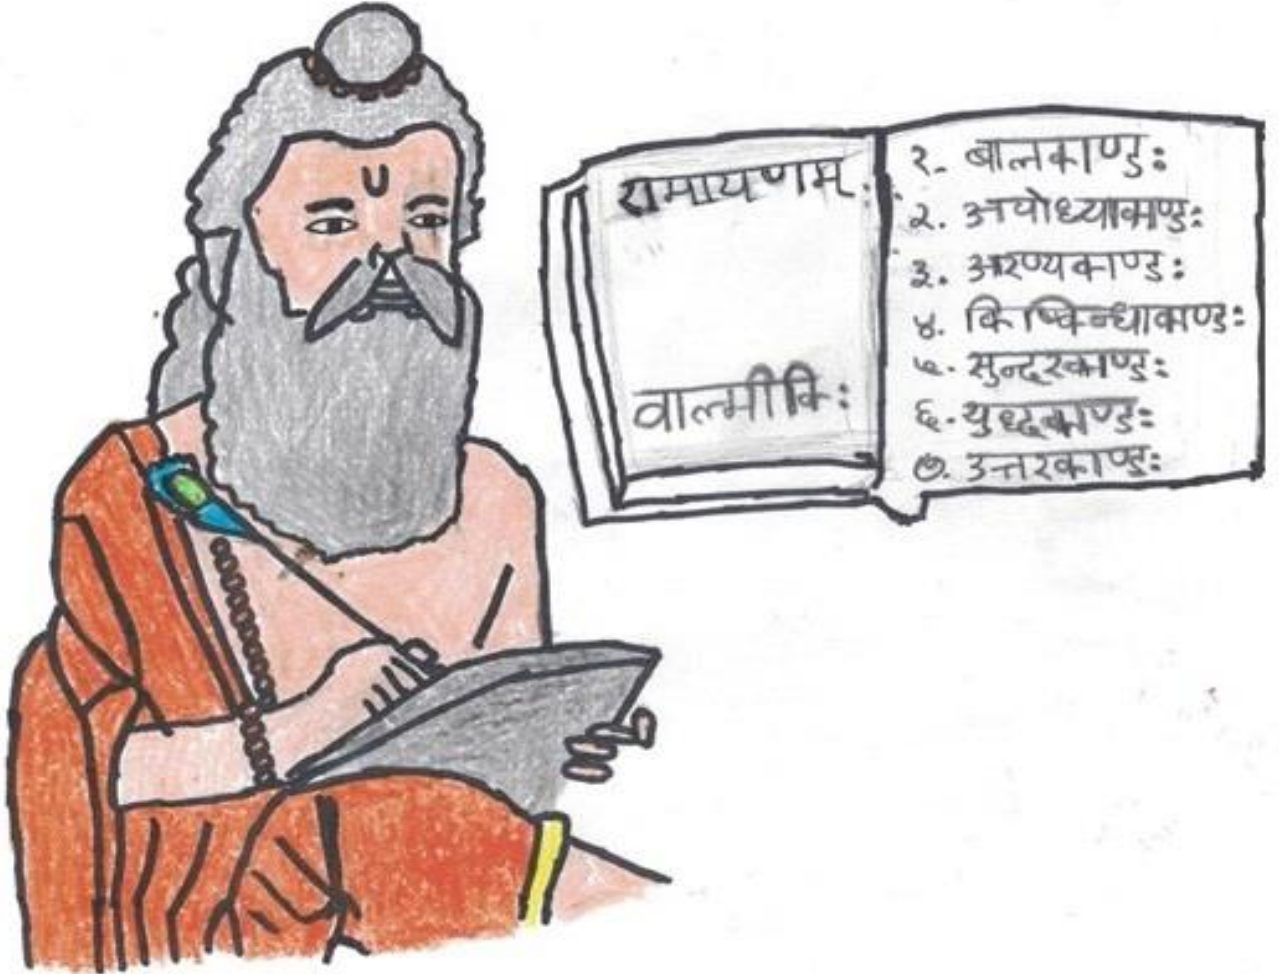 रामायणम्
वाल्मीकिः
१. बालकाण्डः
२. अयोध्याकाण्डः
३. अरण्यकाण्डः
४. किष्किन्धाकाण्डः
५. सुन्दरकाण्डः
६. युध्दकाण्डः
७. उत्तरकाण्डः